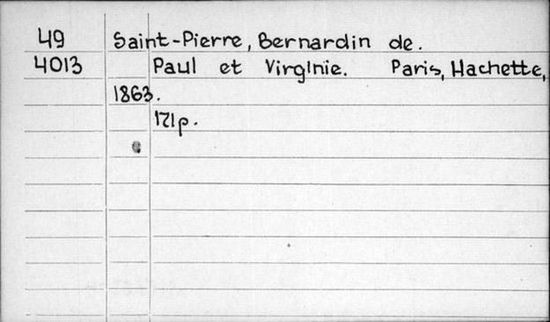 49 Saint-Pierre, Bernardin de.
4013 Paul et Virginie. Paris, Hachette,
1863.
171p.